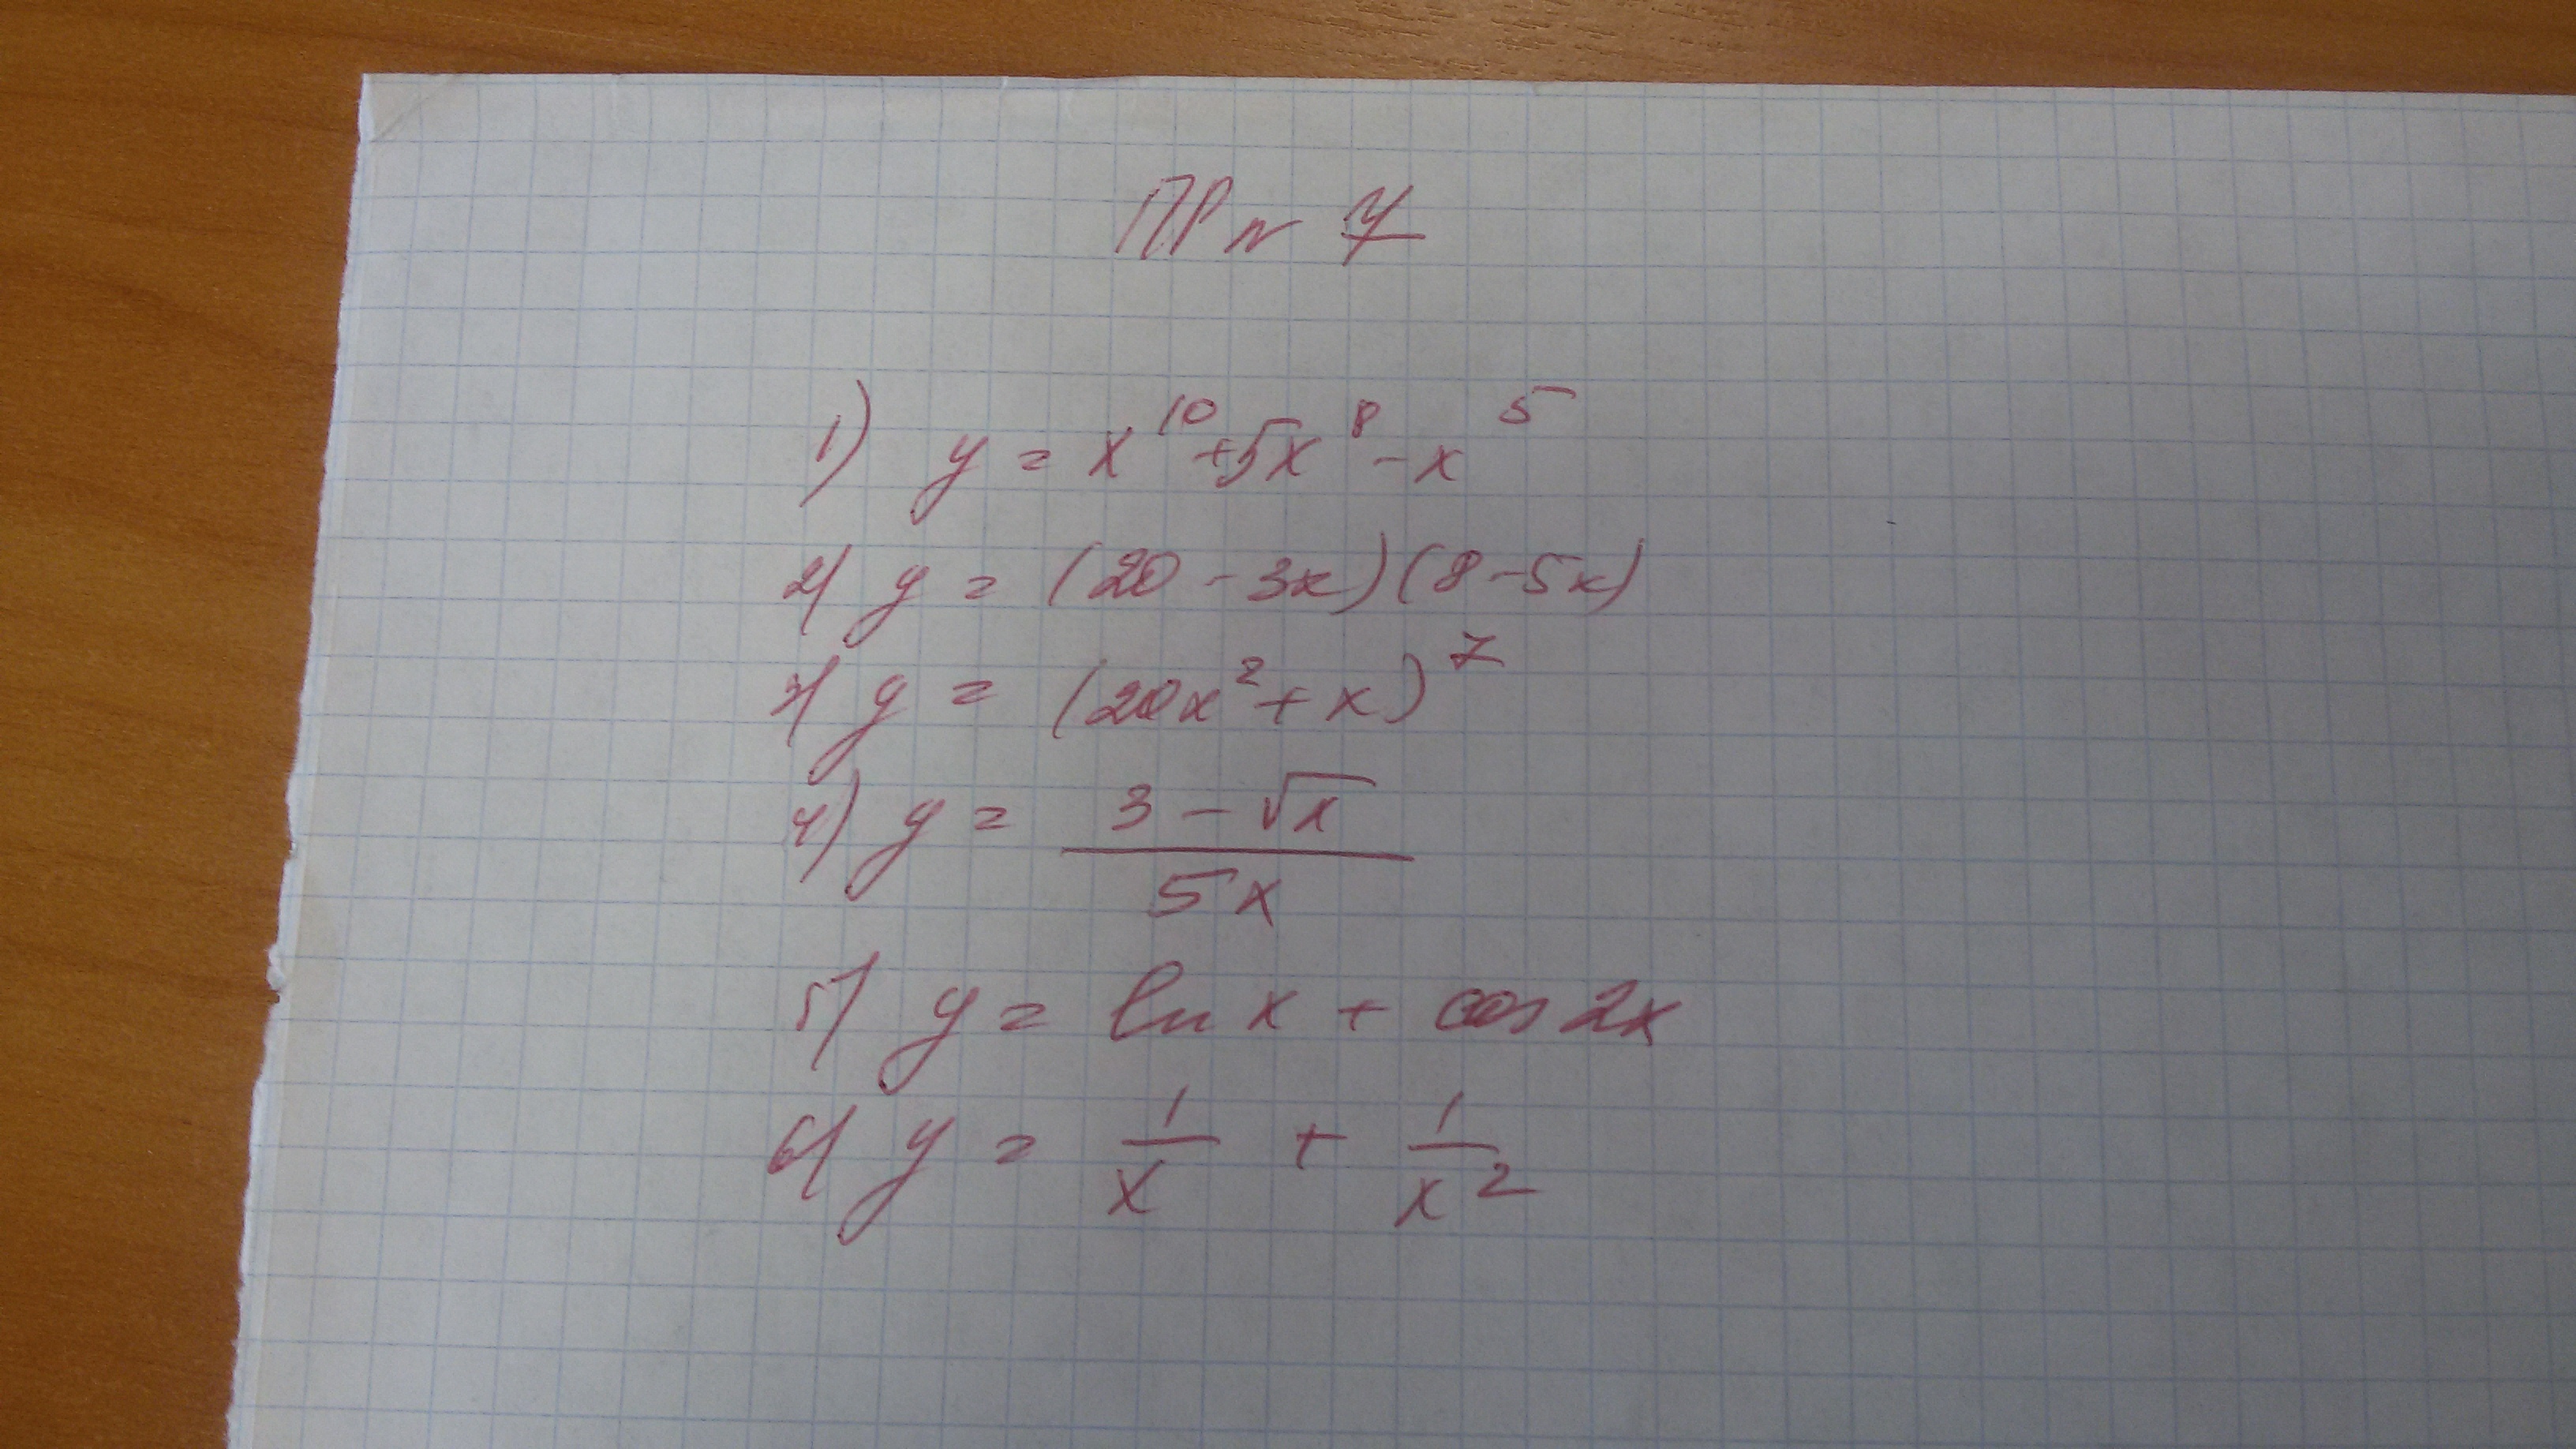 ПР № 7
1) y = x¹⁰ + 5x⁸ - x⁵
2) y = (20 - 3x)(8 - 5x)
3) y = (20x² + x)⁷
4) y = (3 - √x) / (5x)
5) y = ln x + cos 2x
6) y = 1/x + 1/x²